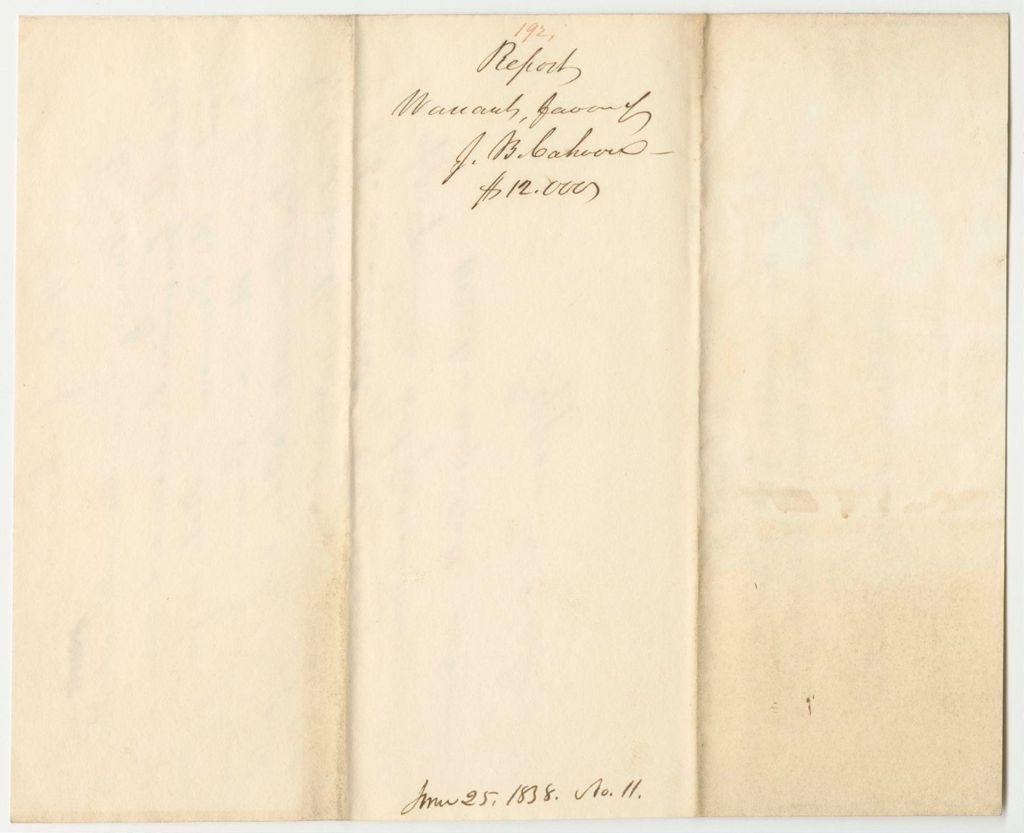 192,
Report
Warrant, favor of
J. B. Cahoon
$12.000
June 25, 1838. No. 11.